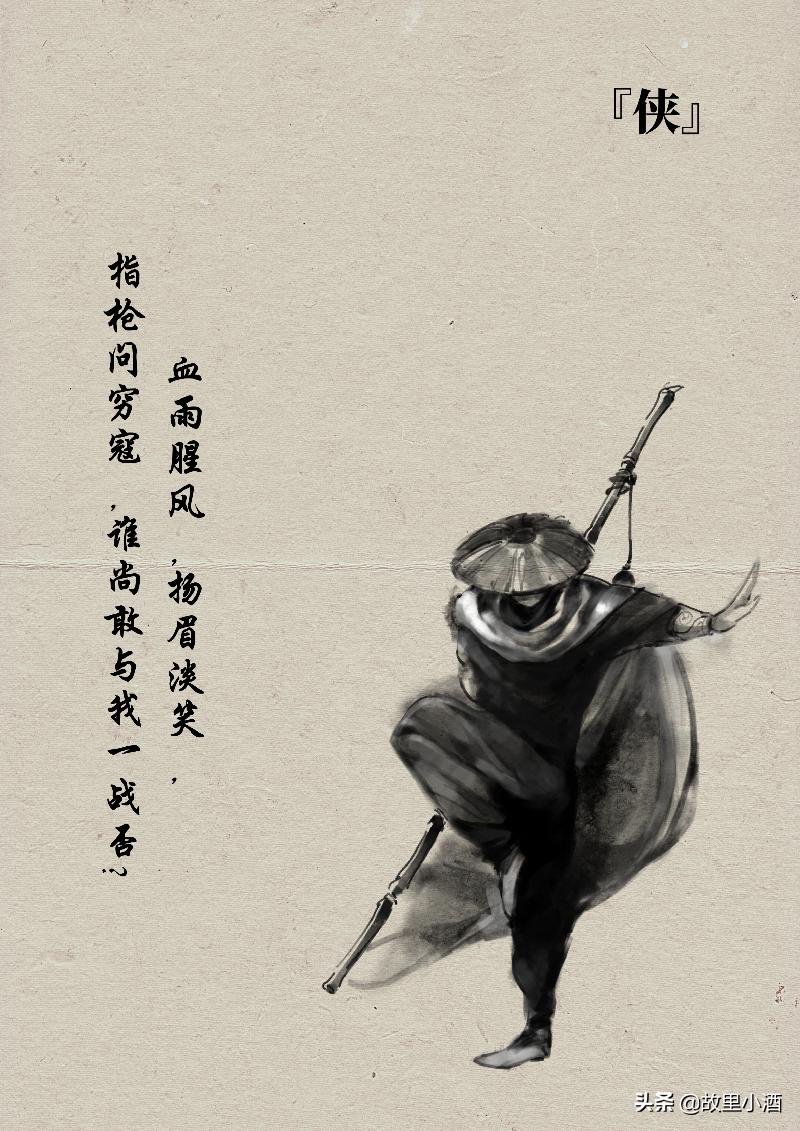 『侠』
血雨腥风，扬眉淡笑，
指枪问穷寇，谁尚敢与我一战否？
头条 @故里小酒